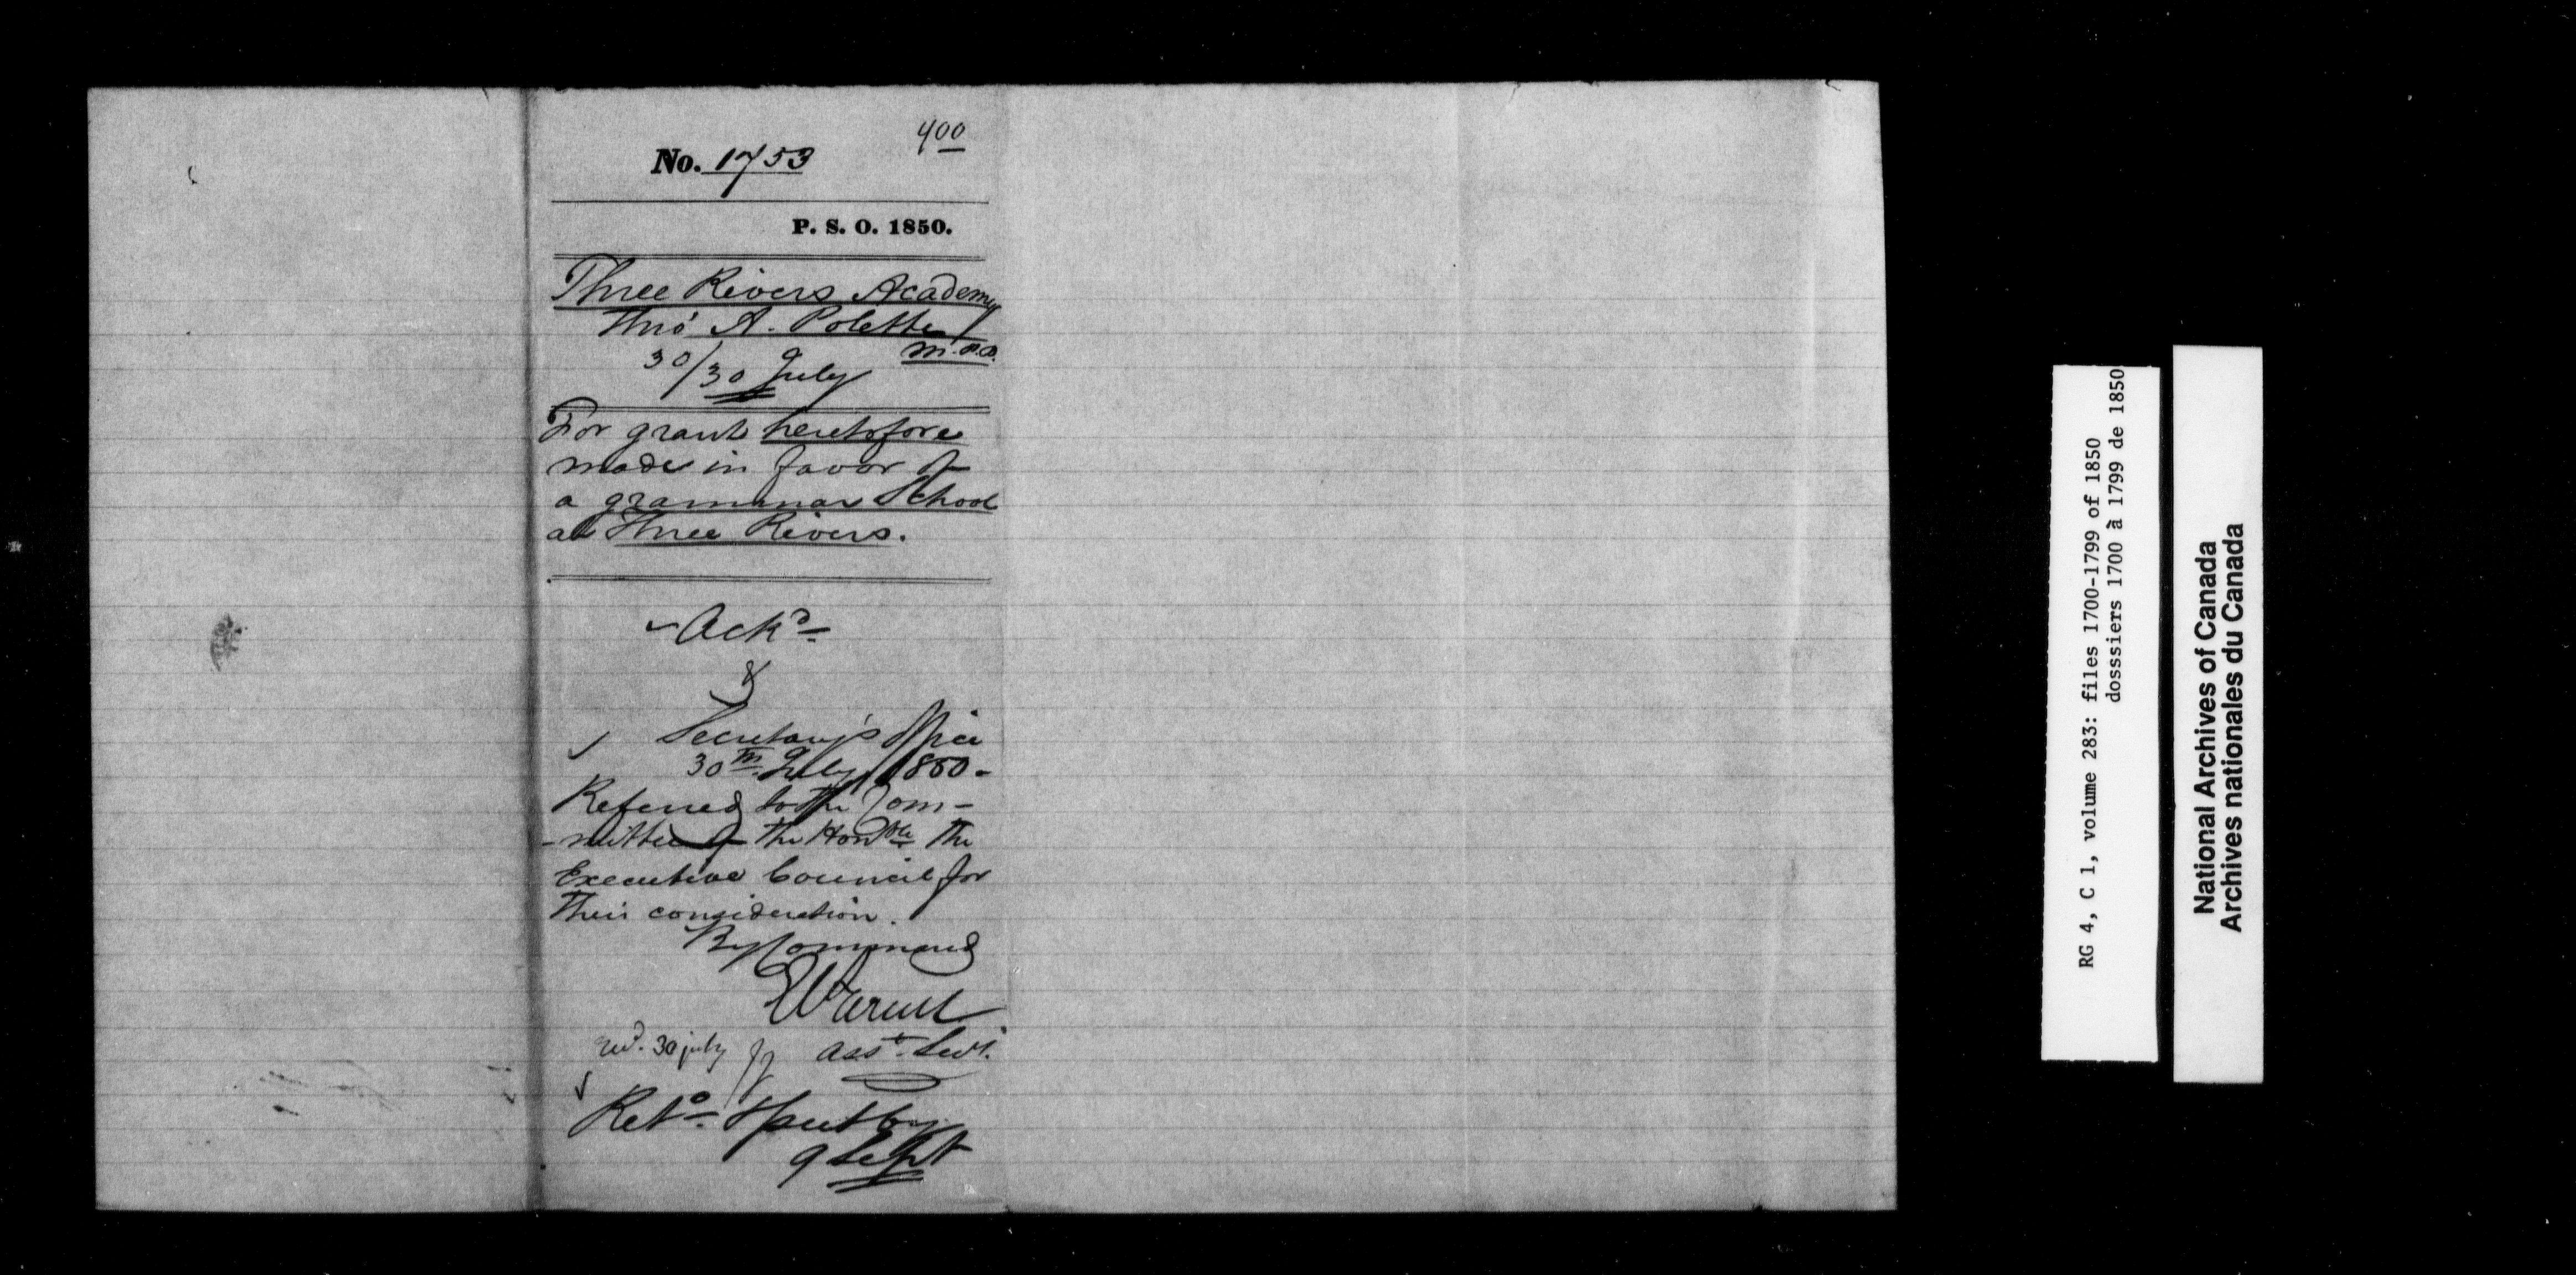 400
No. 1753
P. S. O. 1850.
Three Rivers Academy
Thro' A. Polette
M.P.P.
30/30 July
For grant heretofore
made in favor of
a grammar School
at Three Rivers.
Ackd
&
Secretary's Office
30th July 1850.
Referred to the Com-
-mittee of the Honble the
Executive Council for
their consideration.
By Command
E Parent
recd. 30 july Asst. Secy.
Retd.
9 Sept
RG 4, C 1, volume 283: files 1700-1799 of 1850
dosssiers 1700 à 1799 de 1850
National Archives of Canada
Archives nationales du Canada